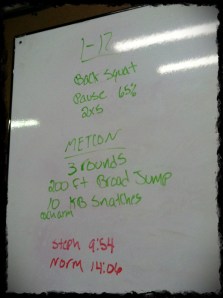 1-17
Back Squat
Pause 65%
2x5
METCON
3 rounds
200 Ft Broad Jump
10 KB Snatches
each arm
Steph 9:54
Norm 14:06